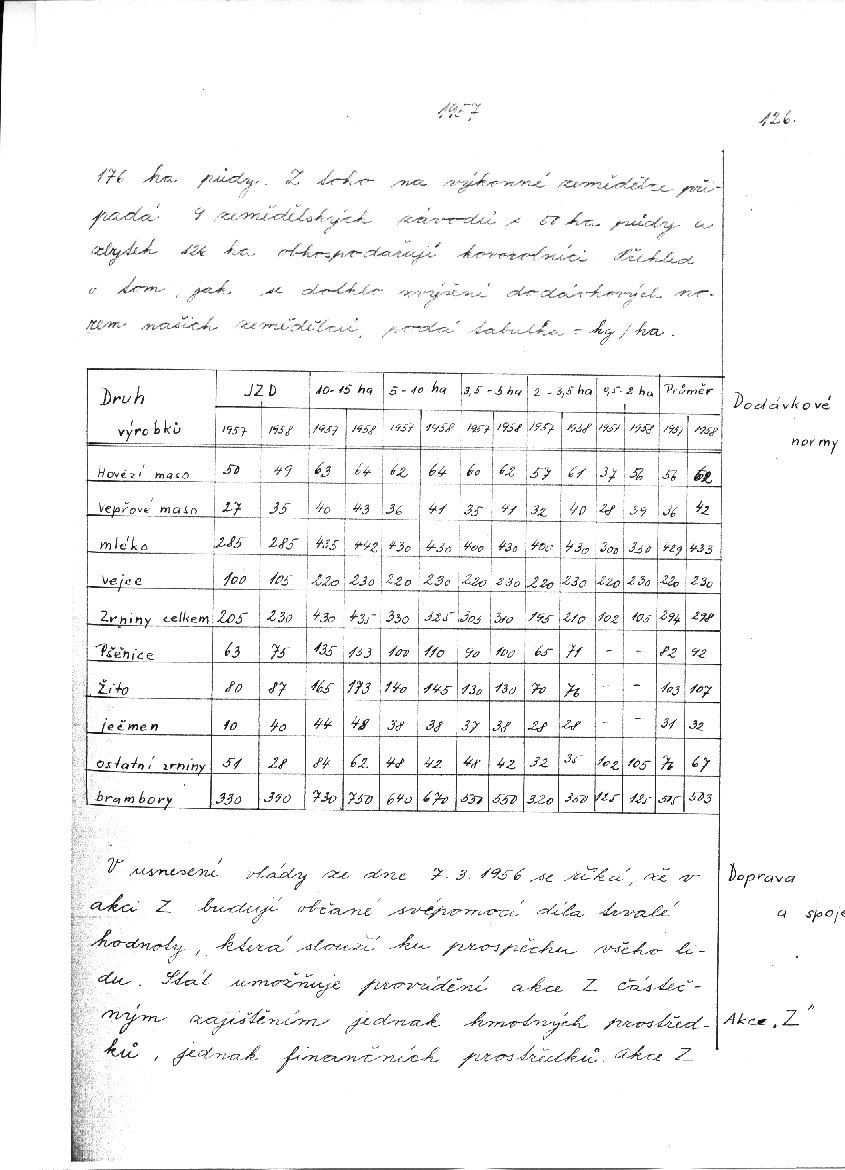 1957
126.
176 ha půdy. Z toho na výkonné zemědělce při-
padá 9 zemědělských závodů s 50 ha půdy a
zbytek 126 ha obhospodařují kovorolníci Přehled
o tom, jak se dotklo zvýšení dodávkových no-
rem našich zemědělců, podá tabulka - kg/ha.
Druh výrobků JZD 10-15 ha 5-10 ha 3,5-5 ha 2-3,5 ha 0,5-2 ha Průměr
1957 1958 1957 1958 1957 1958 1957 1958 1957 1958 1957 1958 1957 1958
Dodávkové
normy
Hovězí maso 50 49 63 64 62 64 60 62 57 61 37 56 56 62
vepřové maso 27 35 40 43 36 41 35 41 32 40 28 39 36 42
mléko 285 285 435 442 430 430 400 430 400 430 300 350 429 433
vejce 100 105 220 230 220 230 220 230 220 230 220 230 220 230
Zrniny celkem 205 230 430 435 330 325 305 310 195 210 102 105 294 298
Pšenice 63 75 135 153 100 110 90 100 65 71 - - 82 92
Žito 80 87 165 173 140 145 130 130 70 76 - - 103 107
ječmen 10 40 44 48 38 38 37 38 28 28 - - 31 32
ostatní zrniny 51 28 84 62 48 42 48 42 32 35 102 105 76 67
brambory 330 390 730 750 640 670 530 550 320 350 125 125 505 503
V usnesení vlády ze dne 7.3.1956 se říká, že v
Doprava
akci Z budují občané svépomocí díla trvalé
a spoje
hodnoty, která slouží ku prospěchu všeho li-
du. Stát umožňuje provádění akce Z částeč-
ným zajištěním jednak hmotných prostřed-
Akce „Z"
ků, jednak finančních prostředků. Akce Z